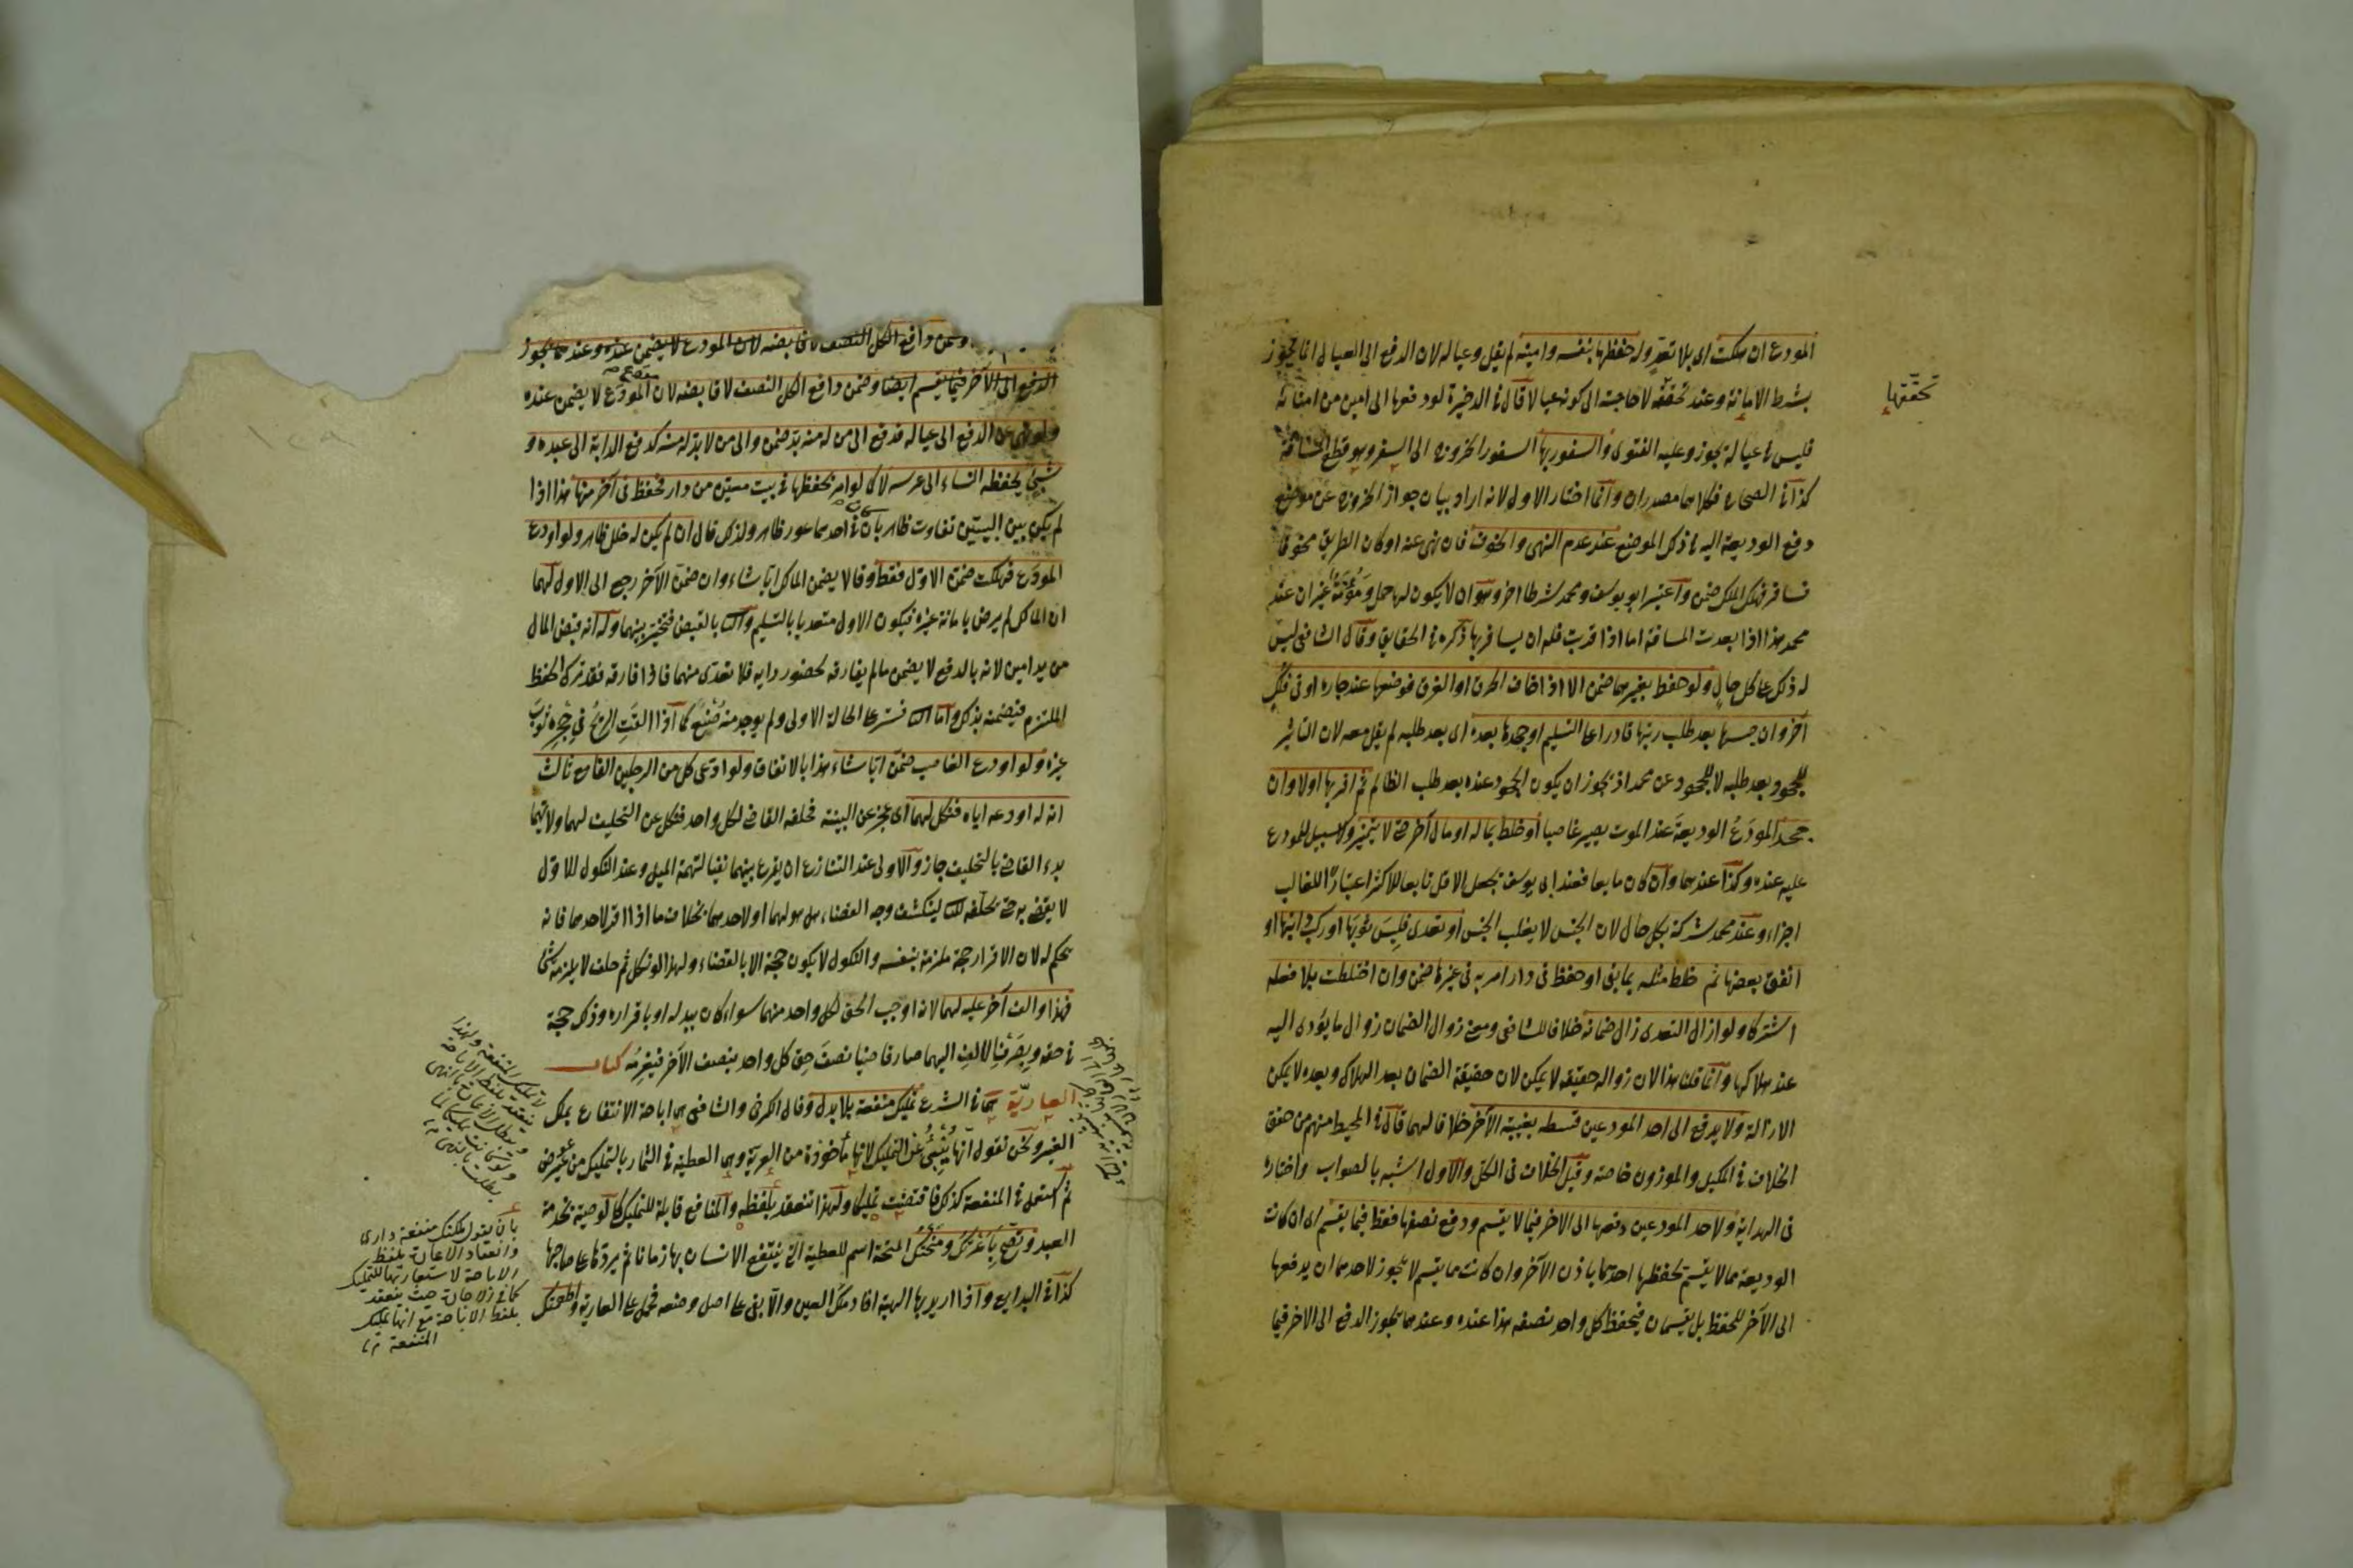 المودع ان هلكت اى بلا تعدٍّ وله حفظها بنفسه وامينه لم يقل وعياله لان الدفع الى العيال انما يجوز
بشرط الامانة وعند تحققه لا حاجة الى كونه عيالا قال فى الذخيرة لو دفعها الى امين من امنائه
تحقّقها
فليس فى عياله يجوز وعليه الفتوى والسفور بها السفور الخروج الى السفر وهو قطع المسافة
كذا فى الصحاح فكلاهما مصدران وانما اختار الاول لانه اراد بيان جواز الخروج عن موضع
دفع الوديعة اليه فى ذلك الموضع عند عدم النهى والخوف فان نهى عنه او كان الطريق مخوفا
فسافر فهلك الملك ضمن واعتبر ابو يوسف ومحمد شرطا اخر وهو ان لا يكون لها حمل ومؤنة غير ان عند
محمد هذا اذا بعدت المسافة اما اذا قربت فله ان يسافر بها ذكره فى الحقايق وقال الشافعى ليس
له ذلك على كل حال ولو حفظ بغيرهما ضمن الا اذا خاف الحرق او الغرق فوضعها عند جاره او فى فلك
آخر وان حبسها بعد طلب ربها قادرا على التسليم او جحدها بعده اى بعد طلبه لم يقل معه لان التاثير
للجحود بعد طلبه لا للجحود عن محمد اذ يجوز ان يكون الجحود عنده بعد طلب الظالم ثم اقر بها اولا وان
جحد المودَعُ الوديعةَ عند الموت يصير غاصبا او خلط بماله او مال آخر حتى لا يتميز ولا سبيل للمودع
عليه عنده وكذا عندهما وان كان مايعا فعند ابى يوسف يجعل الاقل تابعا للاكثر اعتبارًا للغالب
اجزاء وعند محمد شركة بكل حال لان الجنس لا يغلب الجنس او تعدى فلبس ثوبها او ركب دابتها او
انفق بعضها ثم خلط مثله بما بقى او حفظ فى دار امر به فى غيرها ضمن وان اختلطت بلا فعله
اشتركا ولو ازال التعدى زال ضمانه خلافا للشافعى ومعنى زوال الضمان زوال ما يؤدى اليه
عند هلاكها وانما قلنا هذا لان زواله حقيقة لا يمكن لان حقيقة الضمان بعد الهلاك وبعده لا يمكن
الازالة ولا يدفع الى احد المودعين قسطه بغيبة الآخر خلافا لهما قال فى المحيط منهم من حقق
الخلاف فى المكيل والموزون خاصة وقيل الخلاف فى الكل والاول اشبه بالصواب واختاره
فى الهداية ولاحد المودعين دفعها الى الاخر فيما لا يقسم ودفع نصفها فقط فيما يقسم اى ان كانت
الوديعة مما لا يقسم يحفظها احدهما باذن الآخر وان كانت مما يقسم لا يجوز لاحدهما ان يدفعها
الى الآخر للحفظ بل يقسمان فيحفظ كل واحد نصفه هذا عنده وعندهما يجوز الدفع الى الاخر فيما
وضمن دافع الكل النصف لا قابضه لان المودع لا يضمن عنده وعندهما يجوز
الدفع الى الآخر فيما يقسم ايضا وضمن دافع الكل النصف لا قابضه لان المودَع لا يضمن عنده
ولو نهى عن الدفع الى عياله فدفع الى من له منه بدّ ضمن والى من لا بد له منه كدفع الدابة الى عبده و
شىء يحفظه النساء الى عرسه لا كما لو امر بحفظها فى بيت معين من دار فحفظ فى آخر منها هذا اذا
لم يكن بين البيتين تفاوت ظاهر بان كان فى احدهما عور ظاهر ولذلك قال ان لم يكن له خلل ظاهر ولو اودع
المودَع فهلكت ضمن الاول فقط وقالا يضمن المالك ايا شاء وان ضمن الآخر رجع الى الاول لهما
ان المالك لم يرض بامانة غيره فيكون الاول متعديا بالتسليم والثانى بالقبض فتخير بينهما وله انه قبض المال
من يد امين لانه بالدفع لا يضمن ما لم يفارقه لحضور رايه فلا تعدى منهما فاذا فارقه فقد ترك الحفظ
الملتزم فيضمنه بذلك واما الثانى فمستمر على الحالة الاولى ولم يوجد منه صُنع كما اذا القت الريحُ فى حجره ثوبَ
غيره ولو اودع الغاصب ضمن ايا شاء هذا بالاتفاق ولو ادعى كل من الرجلين الفا مع ثالث
انه له اودعه اياه فنكل لهما اى عجز عن البينة فحلفه القاضى لكل واحد فنكل عن التحليف لهما ولا يهما
بدء القاضى بالتحليف جاز والاولى عند التنازع ان يقرع بينهما نفيا لتهمة الميل وعند النكول للاول
لا يقضى به حتى يحلفه للثانى لينكشف وجه القضاء هل هو لهما او لاحدهما بخلاف ما اذا اقر لاحدهما فانه
يحكم له لان الاقرار حجة ملزمة بنفسه والنكول لا يكون حجة الا بالقضاء ولهذا لو نكل ثم حلف لا يلزمه شئ
فهذا والف آخر عليه لهما لانه اوجب الحق لكل واحد منهما سواء كان ببدله او باقراره وذلك حجة
فى حقه وبصرفنا الالف اليهما صار قاضيا نصف حق كل واحد بنصف الآخر فيغرمه كتاب
العاريّة هى فى الشرع تمليك منفعة بلا بدل وقال الكرخى والشافعى هى اباحة الانتفاع بملك
الغير ونحن نقول انها يُنبئ عن التمليك لانها مأخوذة من العرية وهى العطية فى الثمار بالتمليك من غير عوض
ثم استعمل فى المنفعة كذلك فاقتضت تمليكا ولهذا تنعقد بلفظه والمنافع قابلة للتمليك كالوصية بخدمة
العبد وتصح باعرتك ومنحتك المنحة اسم للعطية التى ينتفع الانسان بها زمانا ثم يردها على صاحبها
كذا فى البدايع واذا اريد بها الهبة افاد ملك العين والا بقى على اصل وضعه فحمل على العارية واطعمتك
بان يقول ملكتك منفعة دارى
وانعقاد الاعارة بلفظ
الاباحة لاستعارتها للتمليك
كما فى الاجارة حيث ينعقد
بلفظ الاباحة مع انها تمليك
المنفعة